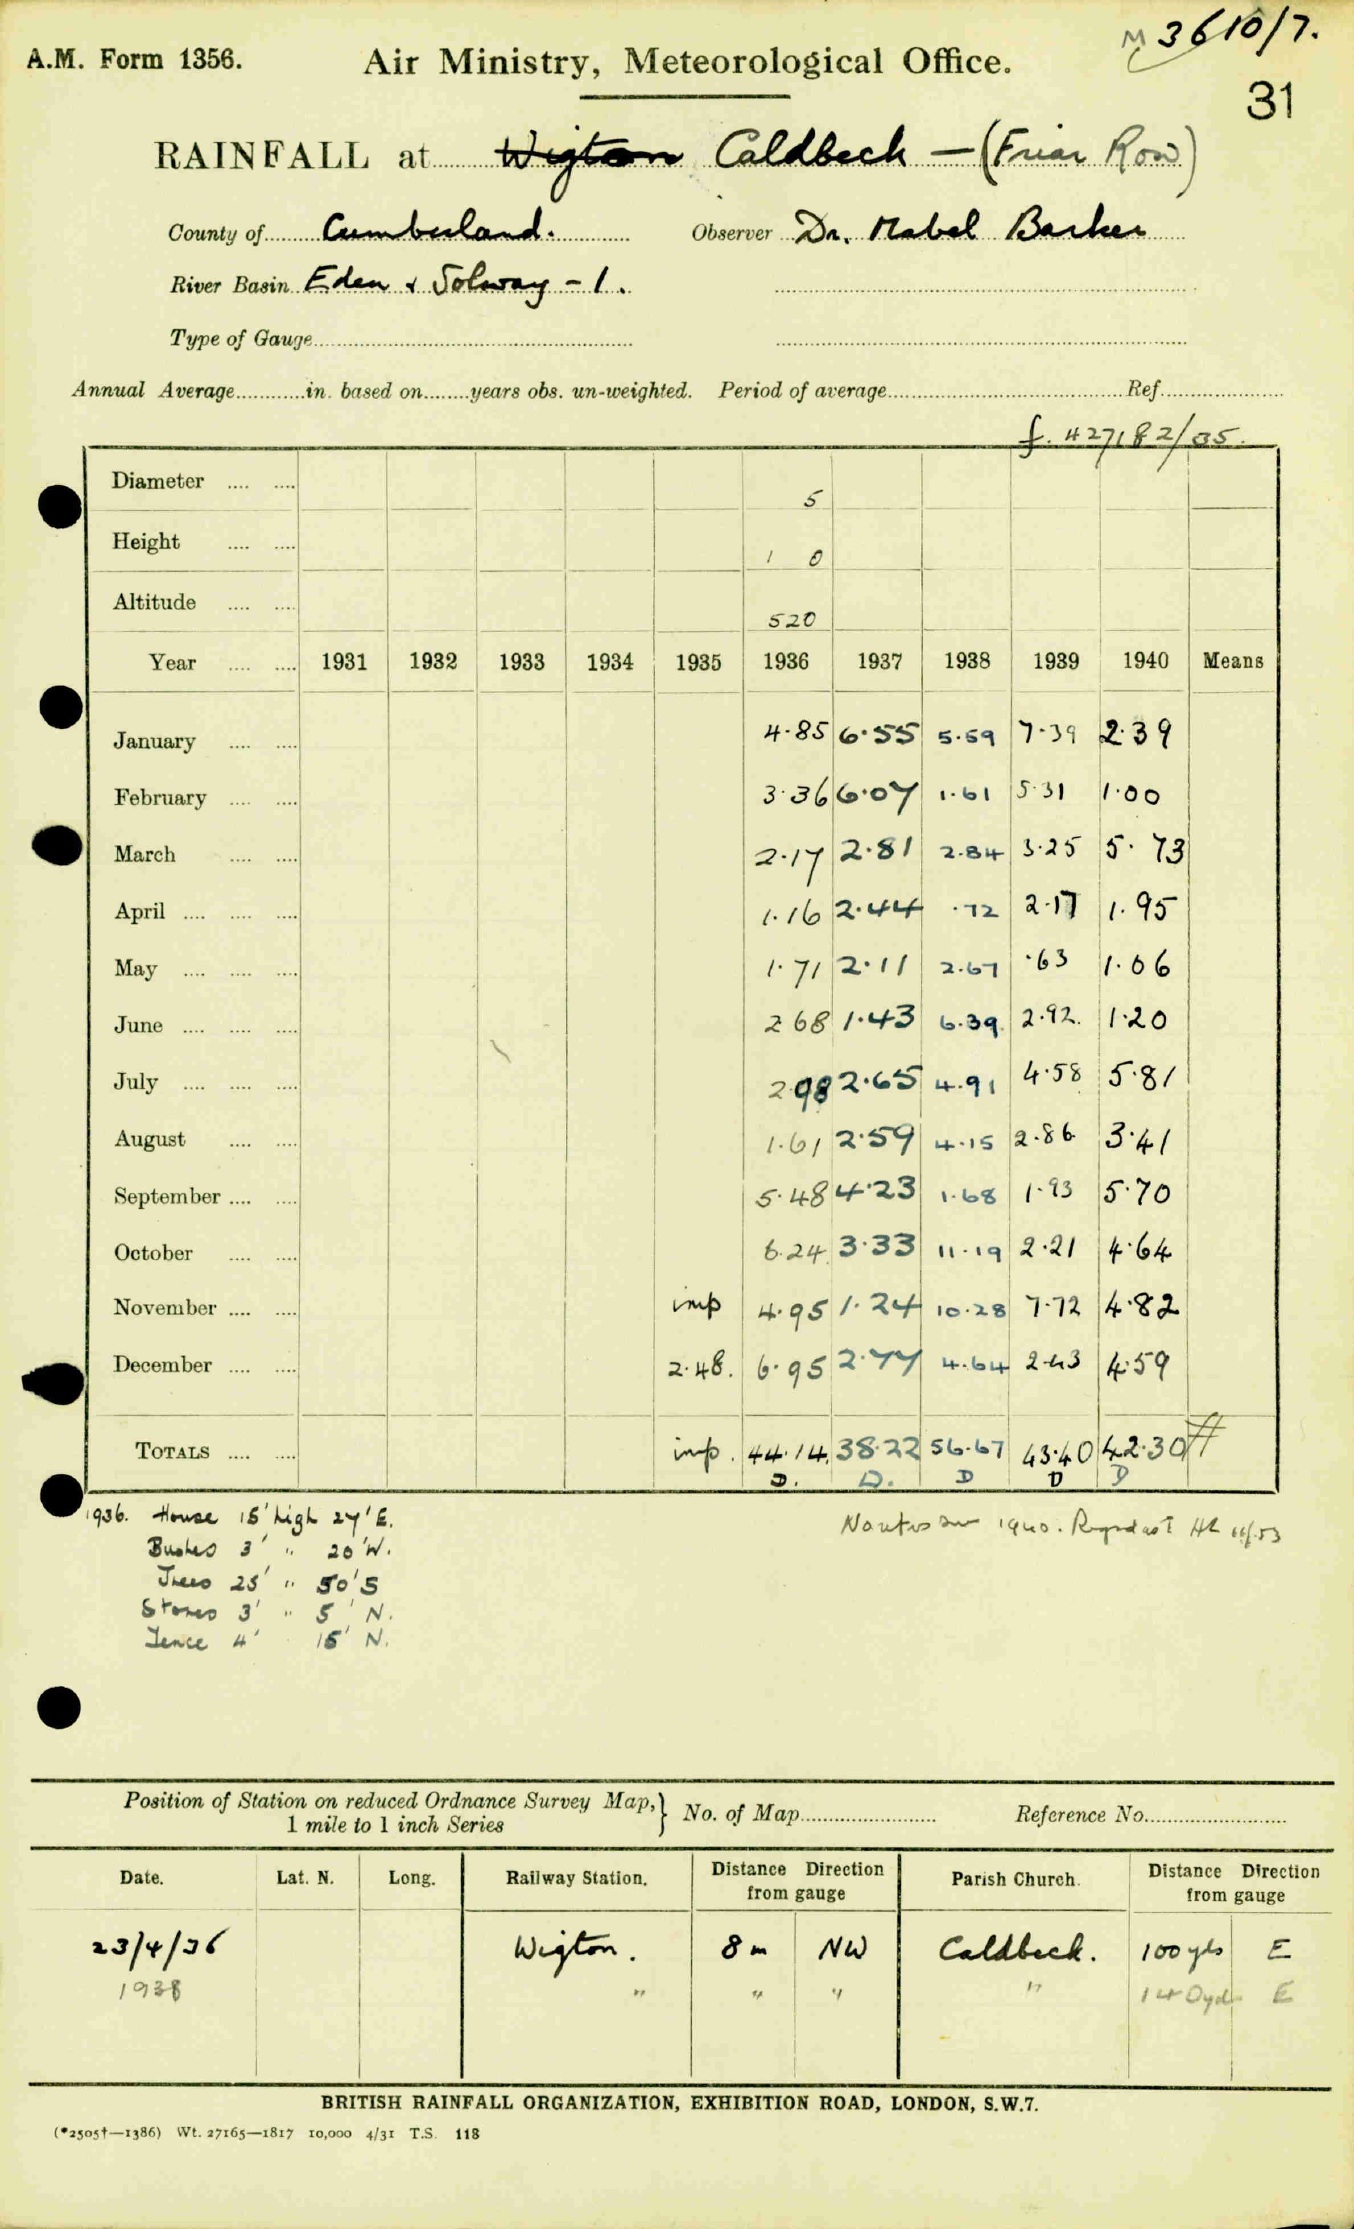 M 3610/7.
A.M. Form 1356. Air Ministry, Meteorological Office.
31
RAINFALL at Wigton Caldbeck — (Friar Row)
County of Cumberland. Observer Dr. Mabel Barker
River Basin Eden & Solway - 1.
Type of Gauge
Annual Average in. based on years obs. un-weighted. Period of average Ref.
f. 427182/35.
Diameter 5
Height 1 0
Altitude 520
Year 1931 1932 1933 1934 1935 1936 1937 1938 1939 1940 Means
January 4.85 6.55 5.59 7.39 2.39
February 3.36 6.07 1.61 5.31 1.00
March 2.17 2.81 2.84 3.25 5.73
April 1.16 2.44 .72 2.17 1.95
May 1.71 2.11 2.67 .63 1.06
June 2 68 1.43 6.39 2.92. 1.20
July 2.98 2.65 4.91 4.58 5.81
August 1.61 2.59 4.15 2.86 3.41
September 5.48 4.23 1.68 1.93 5.70
October 6.24 3.33 11.19 2.21 4.64
November imp 4.95 1.24 10.28 7.72 4.82
December 2.48. 6.95 2.77 4.64 2.43 4.59
TOTALS imp. 44.14. 38.22 56.67 43.40 42.30
D. D. D D D
1936. House 15' high 27' E.
Bushes 3' " 20' W.
Trees 25' " 50' S
Stones 3' " 5' N.
Fence 4' 15' N.
1940.
Position of Station on reduced Ordnance Survey Map,} No. of Map Reference No.
1 mile to 1 inch Series
Date. Lat. N. Long. Railway Station. Distance Direction from gauge Parish Church. Distance Direction from gauge
23/4/36 Wigton. 8 m NW Caldbeck. 100 yds E
1938 " " " " 140 yds E
BRITISH RAINFALL ORGANIZATION, EXHIBITION ROAD, LONDON, S.W.7.
(*2505†—1386) Wt. 27165—1817 10,000 4/31 T.S. 118